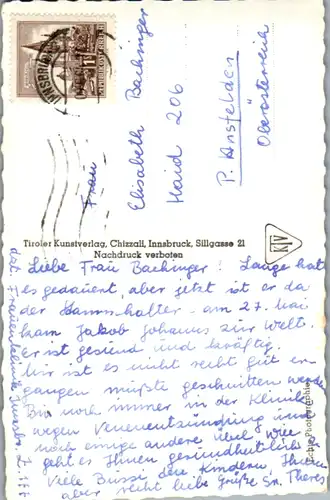 INNSBRUCK
REPUBLIK ÖSTERREICH
Frau
Elisabeth Bachinger
Haid 206
P. Ansfelden
Oberösterreich
Tiroler Kunstverlag, Chizzali, Innsbruck, Sillgasse 21
Nachdruck verboten
KTV
Liebe Frau Bachinger! Lange hat
es gedauert, aber jetzt ist er da
der Stammhalter - am 27. Mai
kam Jakob Johannes zur Welt.
Er ist gesund und kräftig.
Mir ist es nicht recht gut er-
gangen mußte geschnitten werden
Bin noch immer in der Klinik
wegen Venenentzündung und
noch einige andere Übel wie
geht es Ihnen gesundheitlich
Viele Bussi den Kindern Ihnen
aber recht liebe Grüße Sr. Theres
dzt. Frauenklinik Innsbr.